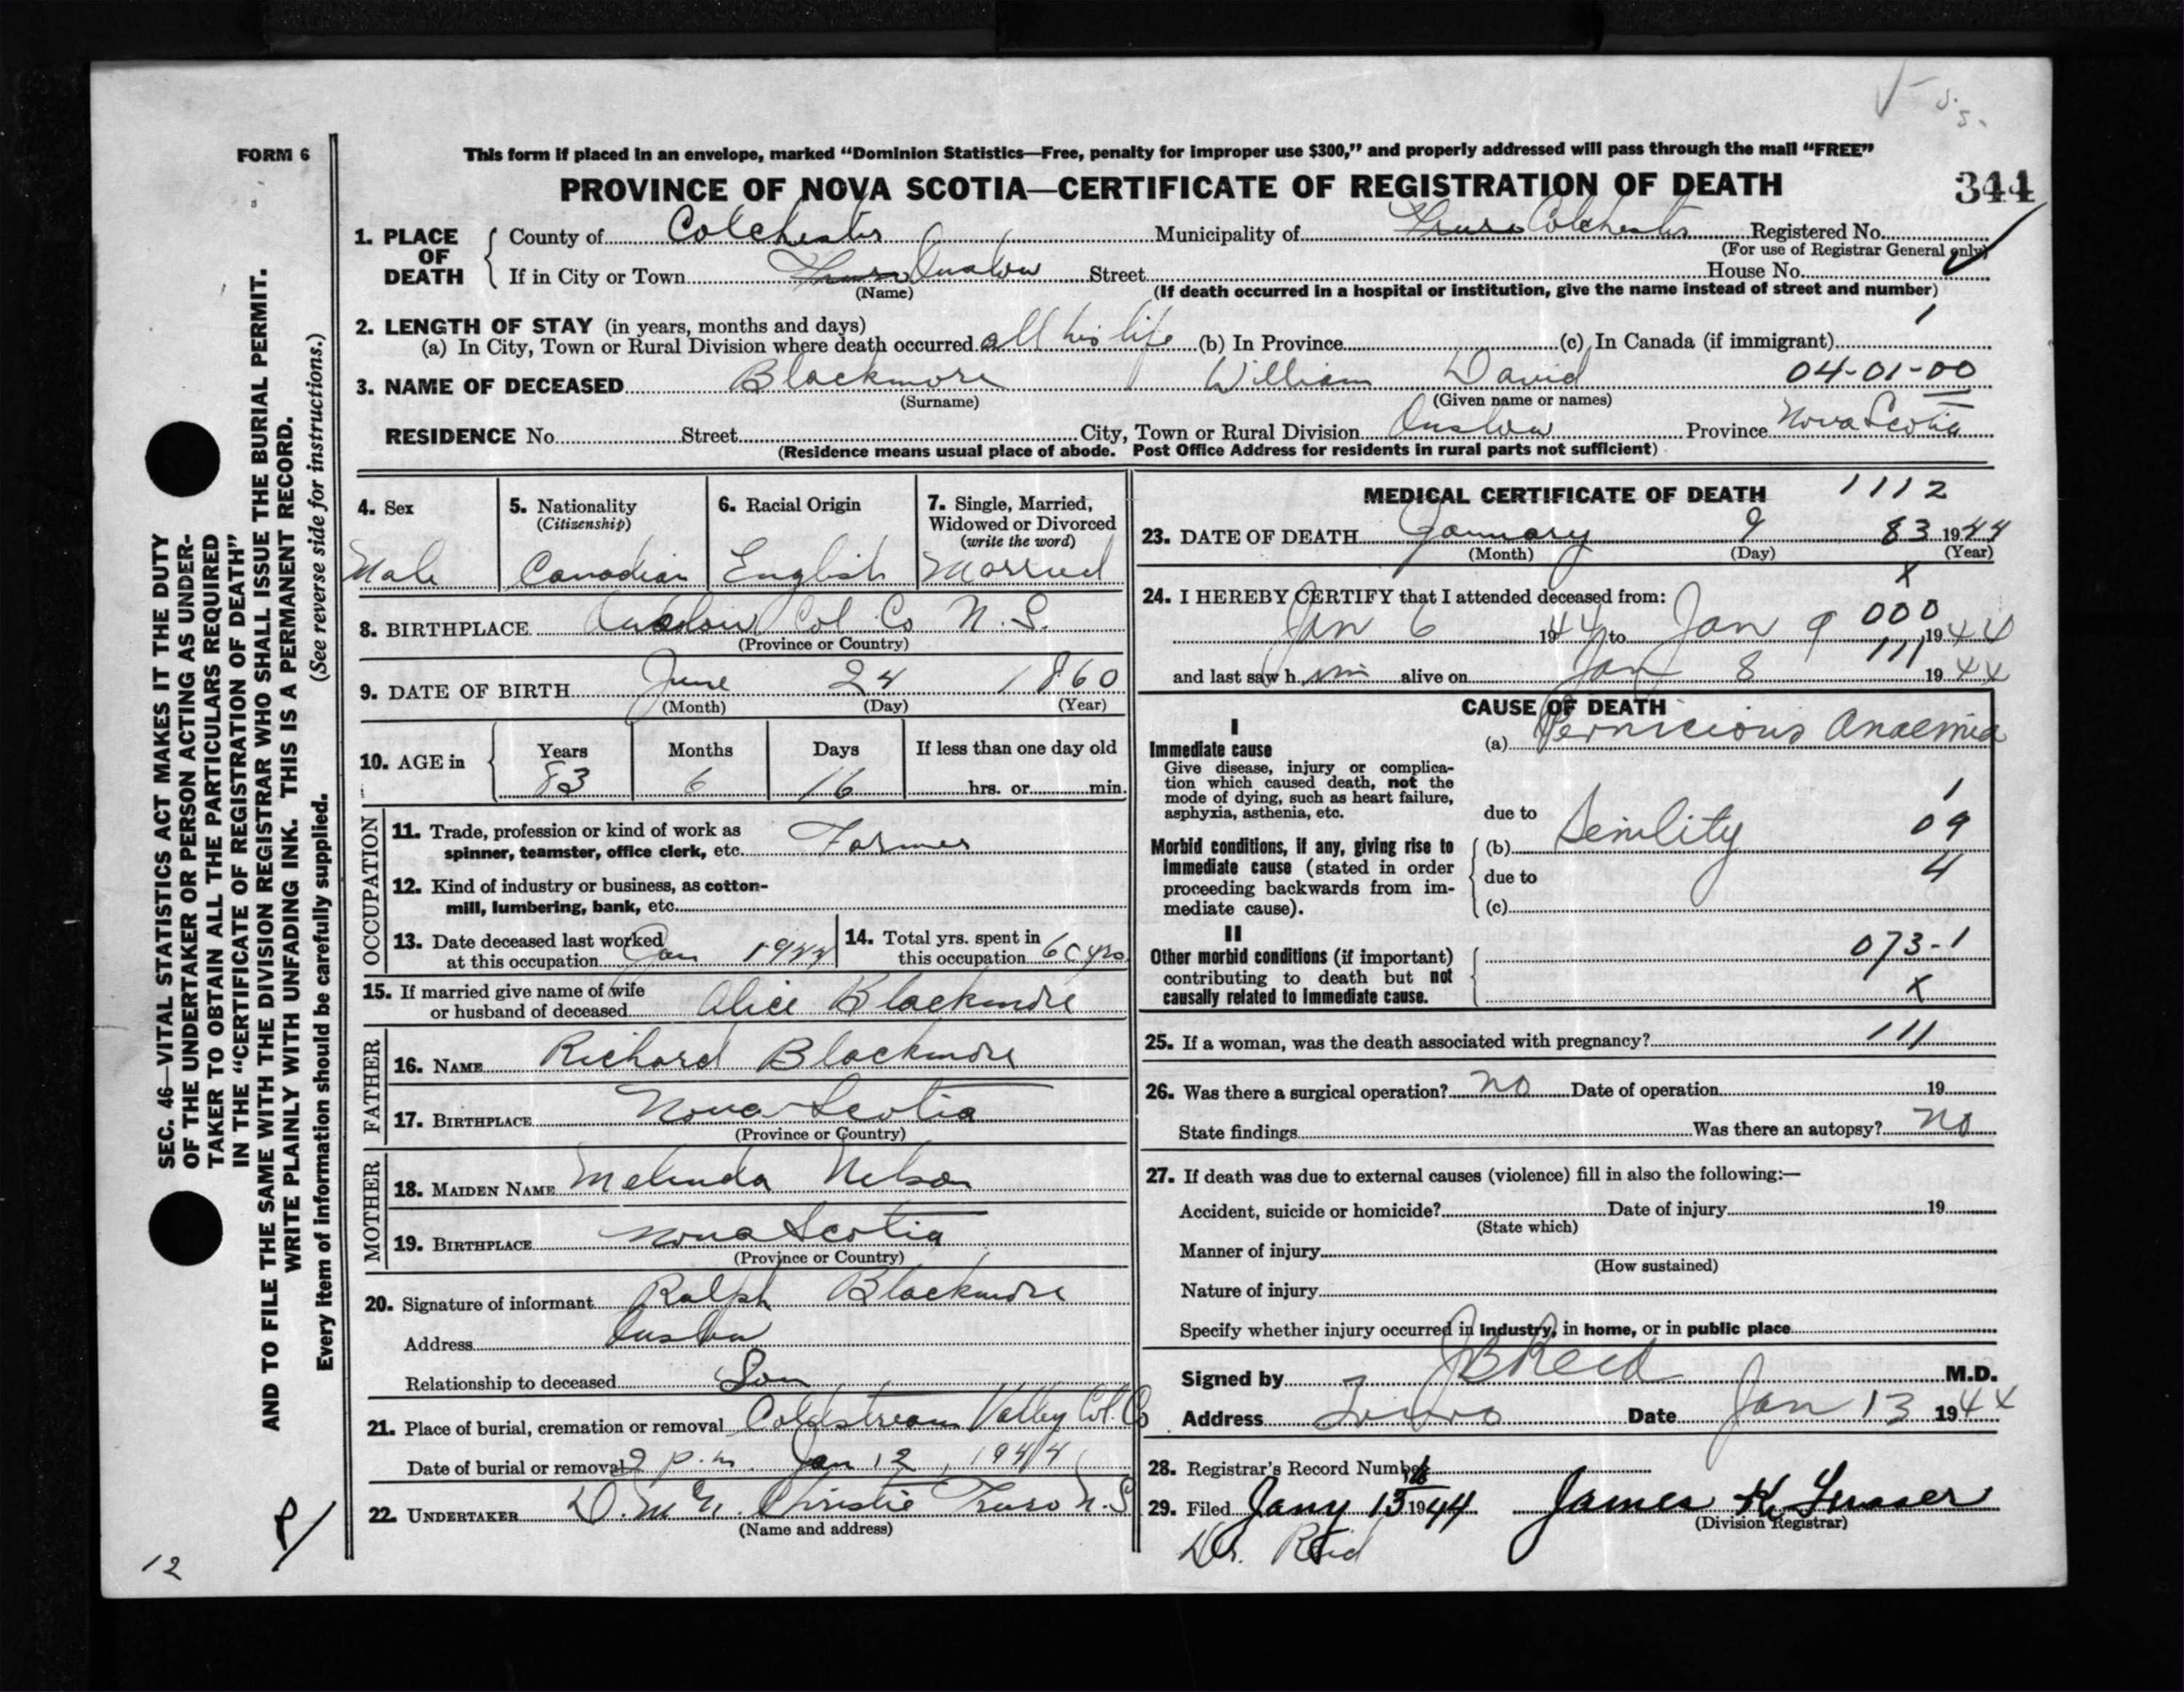 FORM 6
This form if placed in an envelope, marked “Dominion Statistics—Free, penalty for improper use $300,” and properly addressed will pass through the mail “FREE”
PROVINCE OF NOVA SCOTIA—CERTIFICATE OF REGISTRATION OF DEATH
344
1. PLACE OF DEATH
County of Colchester Municipality of Truro Colchester Registered No.
(For use of Registrar General only)
If in City or Town Truro Onslow Street House No.
(Name) (If death occurred in a hospital or institution, give the name instead of street and number)
2. LENGTH OF STAY (in years, months and days)
(a) In City, Town or Rural Division where death occurred all his life (b) In Province (c) In Canada (if immigrant)
3. NAME OF DECEASED Blackmore William David 04-01-00
(Surname) (Given name or names)
RESIDENCE No. Street City, Town or Rural Division Onslow Province Nova Scotia
(Residence means usual place of abode. Post Office Address for residents in rural parts not sufficient)
4. Sex 5. Nationality (Citizenship) 6. Racial Origin 7. Single, Married, Widowed or Divorced (write the word)
Male Canadian English Married
8. BIRTHPLACE Onslow Col. Co N. S.
(Province or Country)
9. DATE OF BIRTH June 24 1860
(Month) (Day) (Year)
10. AGE in Years Months Days If less than one day old
83 6 16 hrs. or min.
OCCUPATION
11. Trade, profession or kind of work as
spinner, teamster, office clerk, etc. Farmer
12. Kind of industry or business, as cotton-
mill, lumbering, bank, etc.
13. Date deceased last worked
at this occupation Jan 1944
14. Total yrs. spent in
this occupation 60 yrs
15. If married give name of wife
or husband of deceased Alice Blackmore
FATHER
16. NAME Richard Blackmore
17. BIRTHPLACE Nova Scotia
(Province or Country)
MOTHER
18. MAIDEN NAME Melinda Nelson
19. BIRTHPLACE Nova Scotia
(Province or Country)
20. Signature of informant Ralph Blackmore
Address Onslow
Relationship to deceased Son
21. Place of burial, cremation or removal Coldstream Valley Col. Co
Date of burial or removal 2 p.m. Jan 12, 1944
22. UNDERTAKER Christie Truro N.S
(Name and address)
MEDICAL CERTIFICATE OF DEATH 1112
23. DATE OF DEATH January 9 83 1944
(Month) (Day) (Year)
x
24. I HEREBY CERTIFY that I attended deceased from:
000
Jan 6 1944 to Jan 9 1944
111
and last saw h im alive on Jan 8 1944
CAUSE OF DEATH
I
Immediate cause
Give disease, injury or complica-
tion which caused death, not the
mode of dying, such as heart failure,
asphyxia, asthenia, etc.
(a) Pernicious Anaemia
1
due to
09
Morbid conditions, if any, giving rise to
immediate cause (stated in order
proceeding backwards from im-
mediate cause).
(b) Senility
4
due to
(c)
II
Other morbid conditions (if important)
contributing to death but not
causally related to immediate cause.
073-1
x
25. If a woman, was the death associated with pregnancy? 111
26. Was there a surgical operation? no Date of operation 19
State findings Was there an autopsy? no
27. If death was due to external causes (violence) fill in also the following:—
Accident, suicide or homicide? Date of injury 19
(State which)
Manner of injury
(How sustained)
Nature of injury
Specify whether injury occurred in industry, in home, or in public place
Signed by JB Reid M.D.
Address Truro Date Jan 13 1944
28. Registrar's Record Number
29. Filed Jany 15 1944 James K
(Division Registrar)
Dr. Reid
SEC. 46—VITAL STATISTICS ACT MAKES IT THE DUTY
OF THE UNDERTAKER OR PERSON ACTING AS UNDER-
TAKER TO OBTAIN ALL THE PARTICULARS REQUIRED
IN THE “CERTIFICATE OF REGISTRATION OF DEATH”
AND TO FILE THE SAME WITH THE DIVISION REGISTRAR WHO SHALL ISSUE THE BURIAL PERMIT.
WRITE PLAINLY WITH UNFADING INK. THIS IS A PERMANENT RECORD.
Every item of information should be carefully supplied. (See reverse side for instructions.)
12